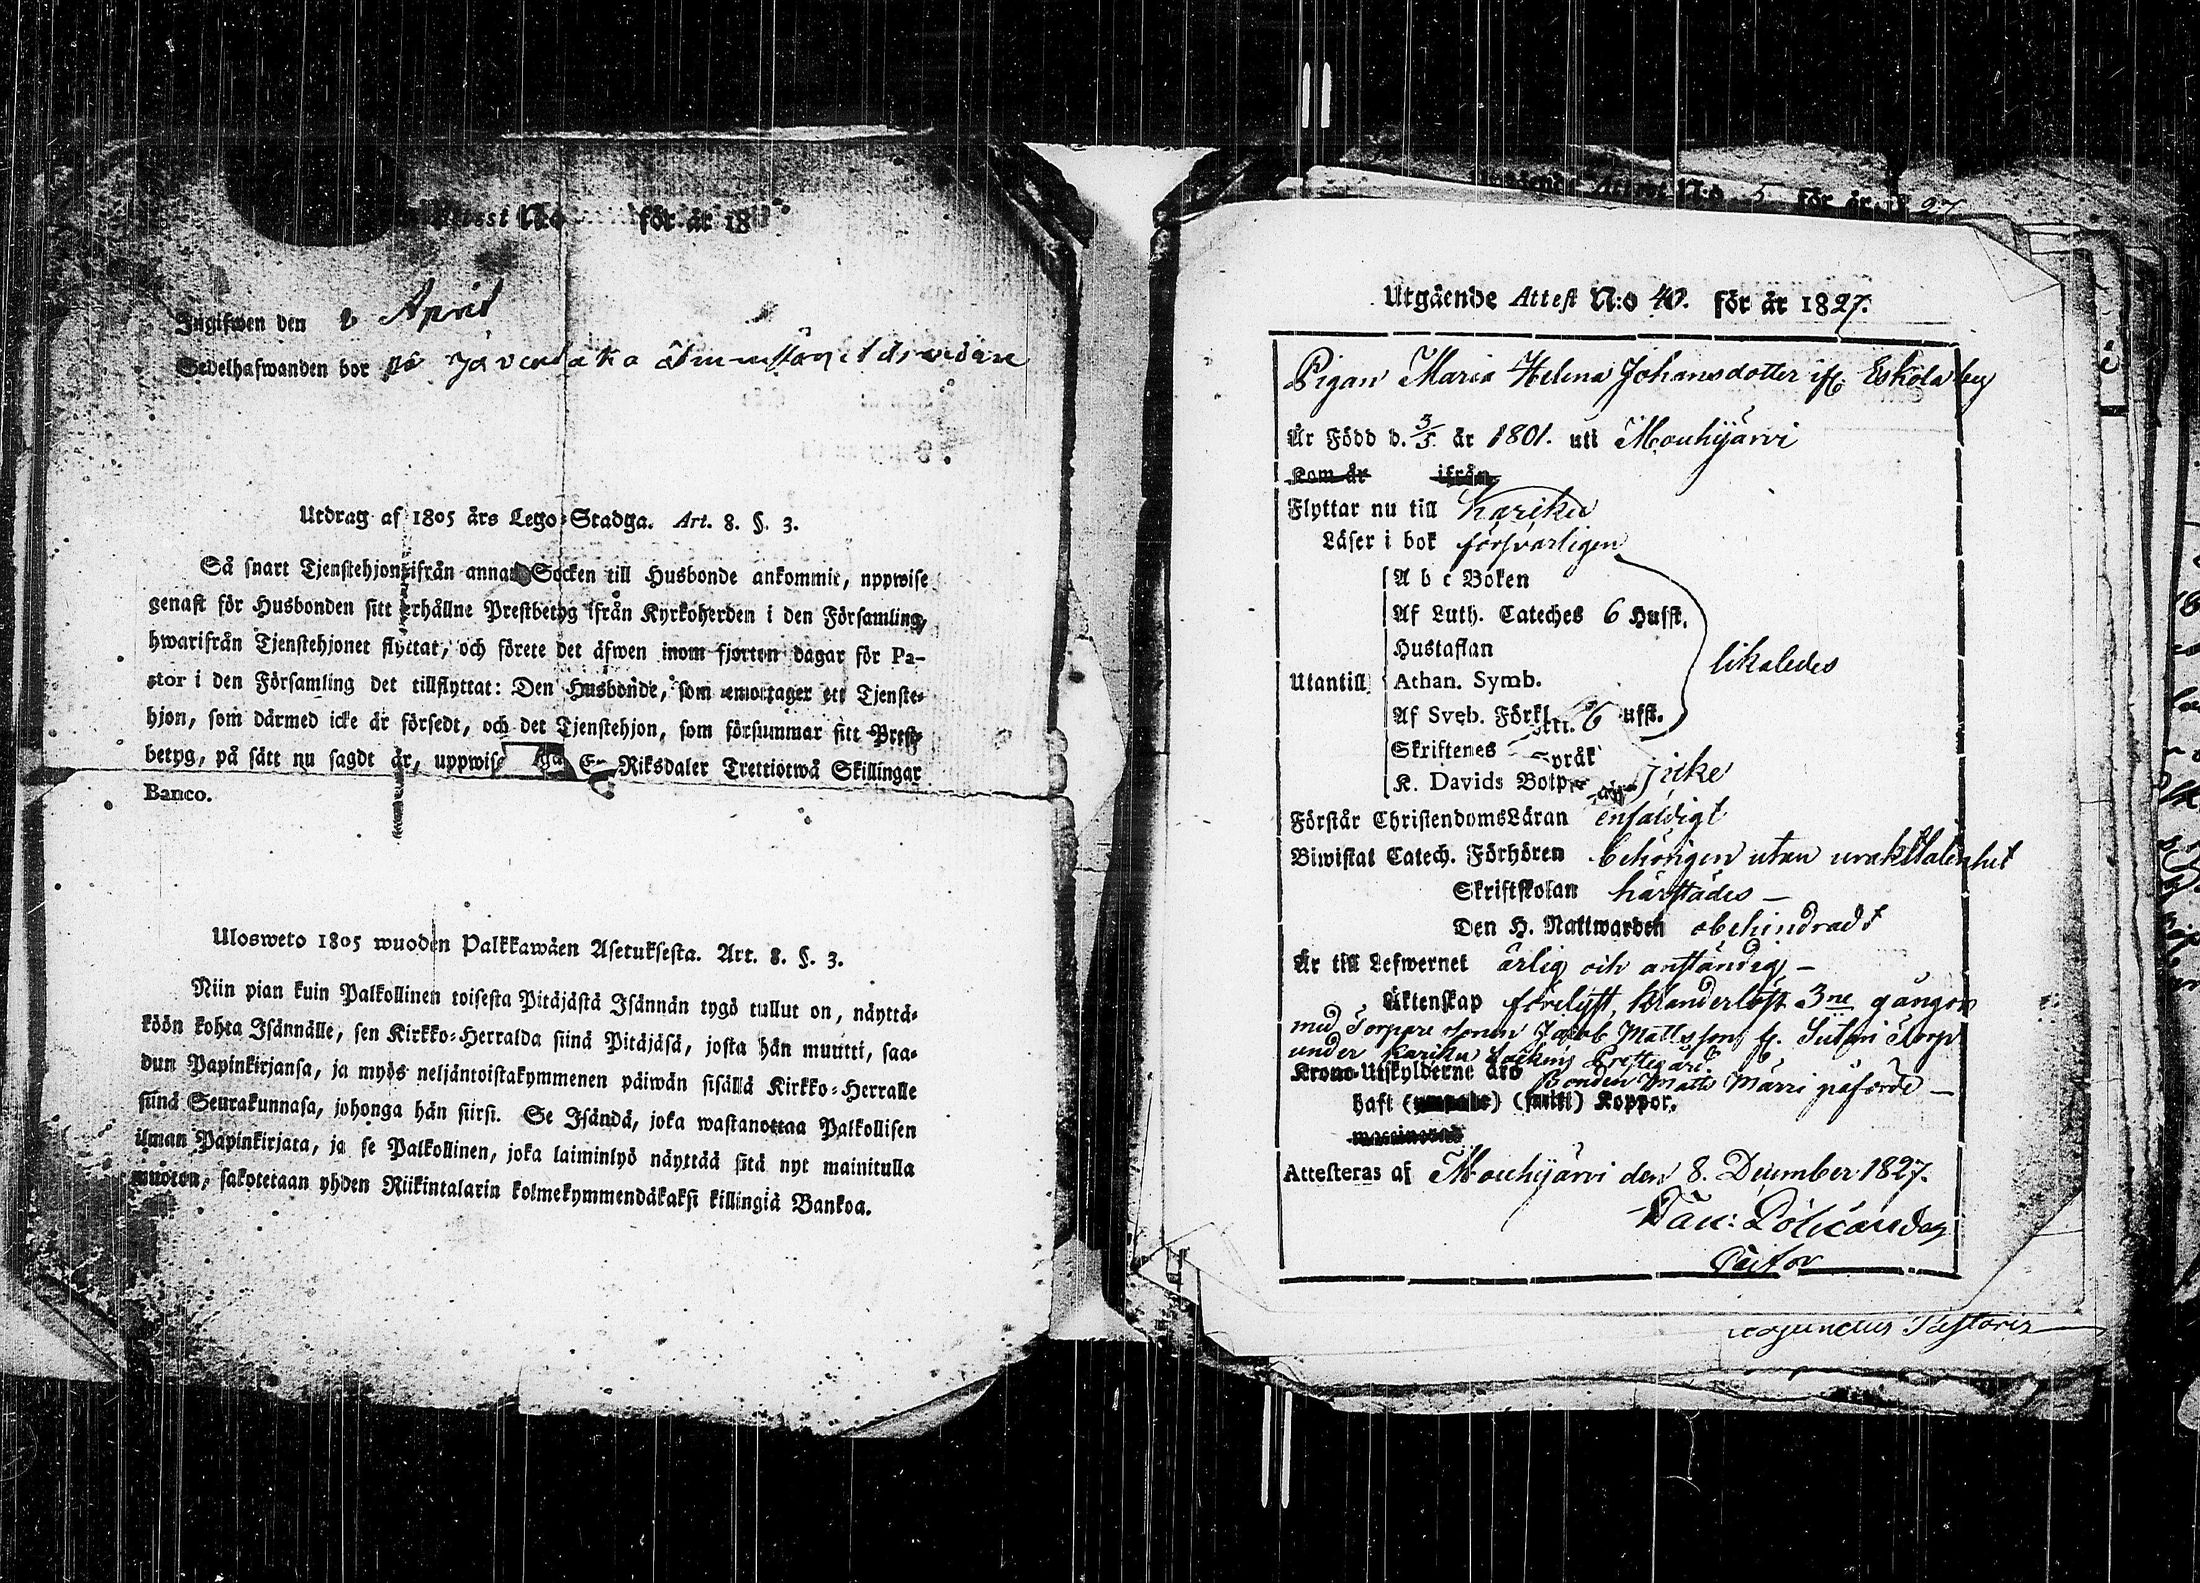 Attest N:o för år 18
Ingifwen den 8 April
Sedelhafwanden bor på
Utdrag af 1805 års Lego-Stadga. Art. 8. §. 3.
Så snart Tjenstehjon ifrån annan Socken till Husbonde ankommit, uppwise
genast för Husbonden sitt erhållne Prestbetyg ifrån Kyrkoherden i den Församling,
hwarifrån Tjenstehjonet flyttat, och förete det äfwen inom fjorton dagar för Pa-
stor i den Församling det tillflyttat: Den Husbonde, som emottager ett Tjenste-
hjon, som därmed icke är försedt, och det Tjenstehjon, som försummar sitt Prest-
betyg, på sätt nu sagdt är, uppwise En Riksdaler Trettiotwå Skillingar
Banco.
Ulosweto 1805 wuoden Palkkawäen Asetuksesta. Art. 8. §. 3.
Niin pian kuin Palkollinen toisesta Pitäjästä Isännän tygö tullut on, näyttä-
köön kohta Isännälle, sen Kirkko-Herralda siinä Pitäjäsä, josta hän muutti, saa-
dun Papinkirjansa, ja myös neljäntoistakymmenen päiwän sisällä Kirkko-Herralle
siinä Seurakunnasa, johonga hän siirsi. Se Isändä, joka wastanottaa Palkollisen
ilman Papinkirjata, ja se Palkollinen, joka laiminlyö näyttää sitä nyt mainitulla
muoton, sakotetaan yhden Riikintalarin kolmekymmendäkaksi killingiä Bankoa.
Attest N:o 5 för år 1827
Utgående Attest N:o 40. för år 1827.
Pigan Maria Helena Johansdotter ifr. Eskola by
Är Född d. 3/5 år 1801. uti Mouhijärvi
Kom år ifrån
Flyttar nu till Kariku
Läser i bok försvarligen
A b c Boken
Af Luth. Cateches 6 Hufst.
Hustaflan
likaledes
Utantill Athan. Symb.
Af Sveb. Förkl. 6 ufst.
Skriftenes Språk
K. Davids Botps. icke
Förstår ChristendomsLäran enfaldigt
Biwistat Catech. Förhören behörigen utan uraktlåtenhet
Skriftskolan härstädes –
Den H. Nattwarden obehindradt
Är till Lefwernet ärlig och anständig –
Äktenskap förelyst, klanderlöst 3ne gånger
med Torpare sonen Jacob Mattsson fr. Torp
under Kariku Sockens Prestegård.
Krono-Utskylderne äro Bonden Matts Märri påförde –
haft (smitt) Koppor.
Attesteras af Mouhijärvi den 8. December 1827.
Pastor
adjunctus Pastoris